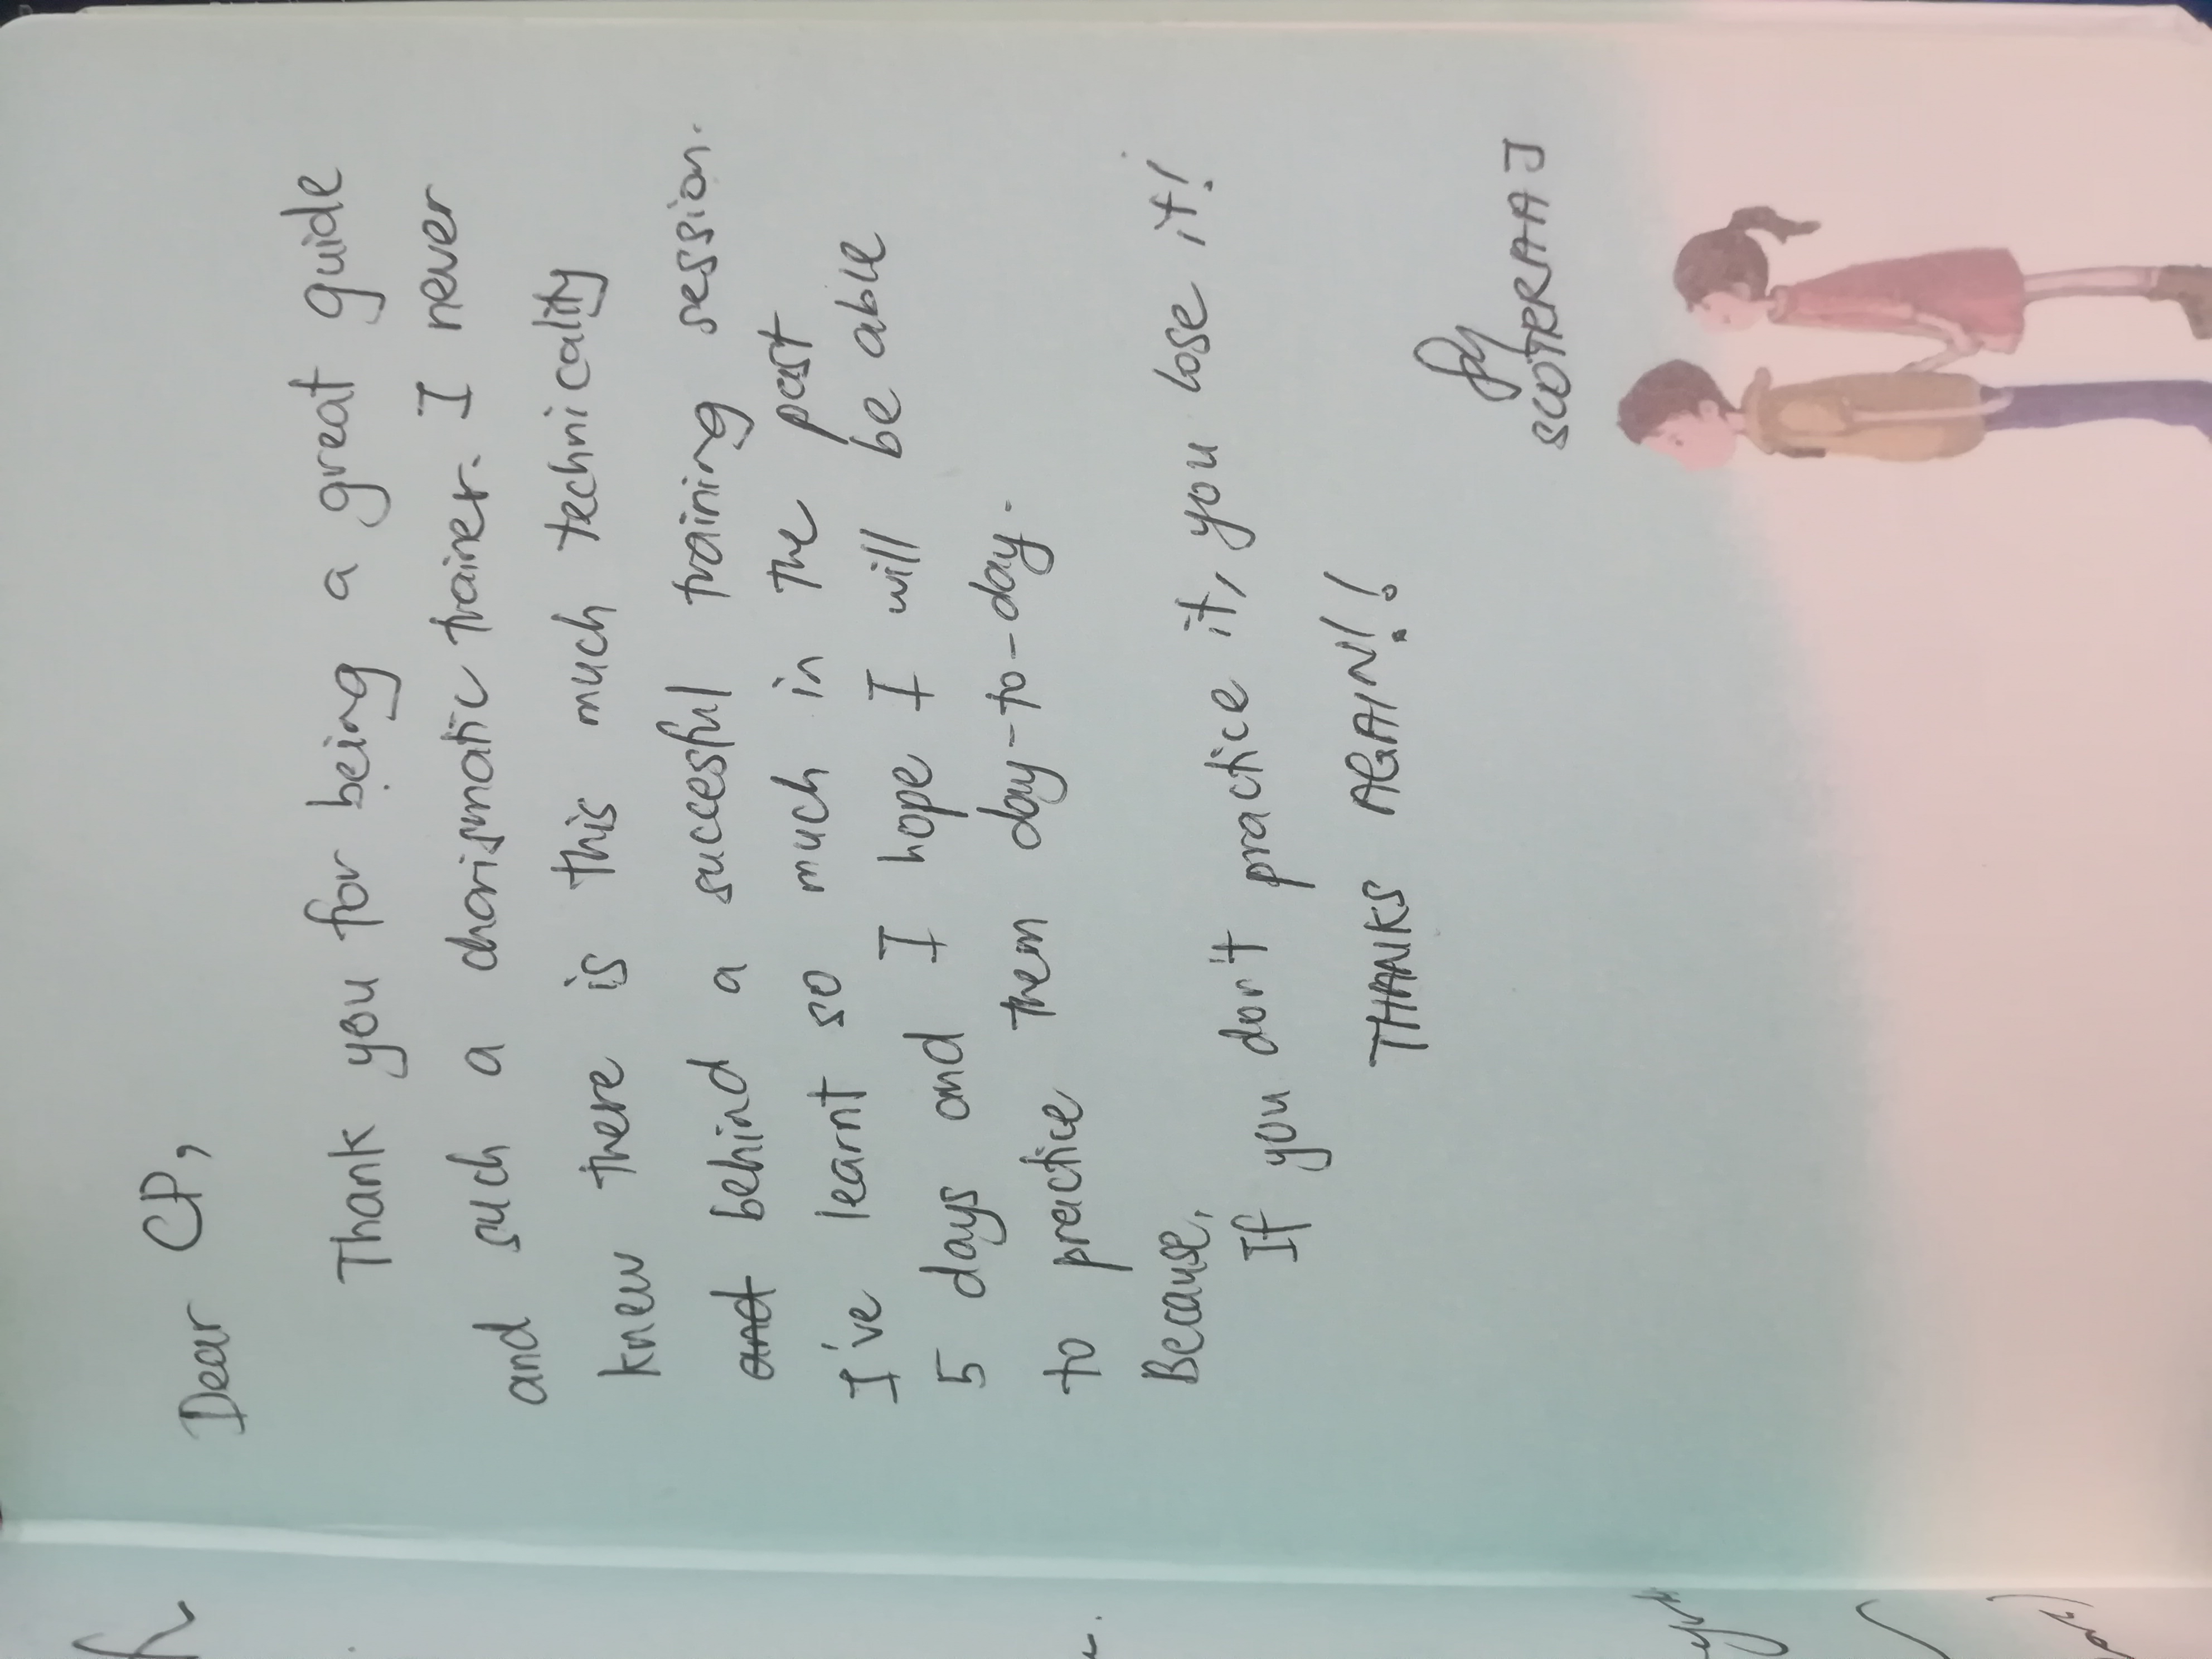 Dear CP,
Thank you for being a great guide
and such a charismatic trainer. I never
knew there is this much technicality
and behind a successful training session.
I've learnt so much in the past
5 days and I hope I will be able
to practice them day-to-day.
Because,
If you don't practice it, you lose it!
THANKS AGAIN!!